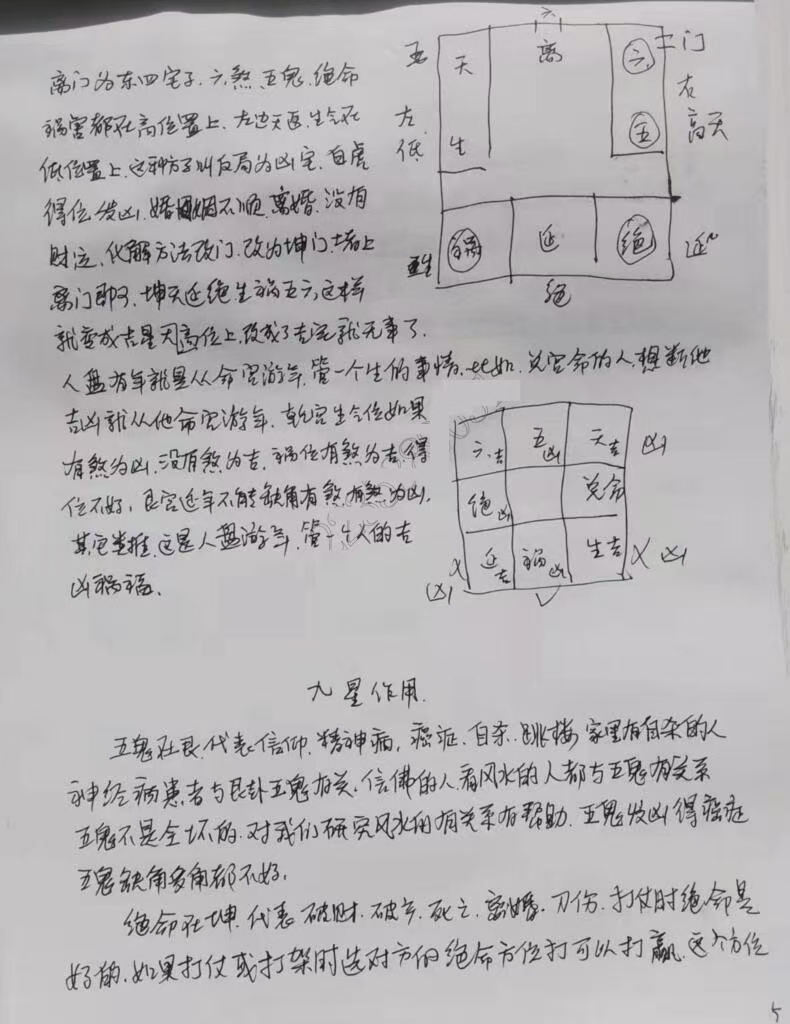 离门为东四宅子.六煞.五鬼.绝命
祸害都在高位置上.左边天医.生气在
低位置上.这种方子叫反局为凶宅.白虎
得位发凶.婚姻不顺.离婚.没有
财运.化解方法改门.改为坤门.堵上
离门即可.坤天延绝生祸五六.这样
就变成吉星天高位上.改成了吉宅就无事了.
人盘有年就是从命宫游年.管一个生的事情.比如.兑宫命的人.想断他
吉凶就从他命宫游年.乾宫生气位如果
有煞为凶.没有煞为吉.祸位有煞为吉.得
位不好.艮宫延年不能缺角有煞.有煞为凶.
其它类推.这是人盘游年.管一个人的吉
凶祸福.
六
离
天
生
六
五
土门
右
高天
左
低
祸
延
绝
绝
六吉
五凶
天吉
凶
绝凶
兑命
延吉
祸凶
生吉
X
凶
X
凶
九星作用.
五鬼在艮.代表信仰.精神病.癌症.自杀.跳楼.家里有自杀的人
神经病患者与艮卦五鬼有关.信佛的人.看风水的人都与五鬼有关系
五鬼不是全坏的.对我们研究风水的有关系有帮助.五鬼发凶得癌症
五鬼缺角多角都不好.
绝命在坤.代表破财.破产.死亡.离婚.刀伤.打仗时绝命是
好的.如果打仗或打架时选对方的绝命方位打可以打赢.这个方位
5